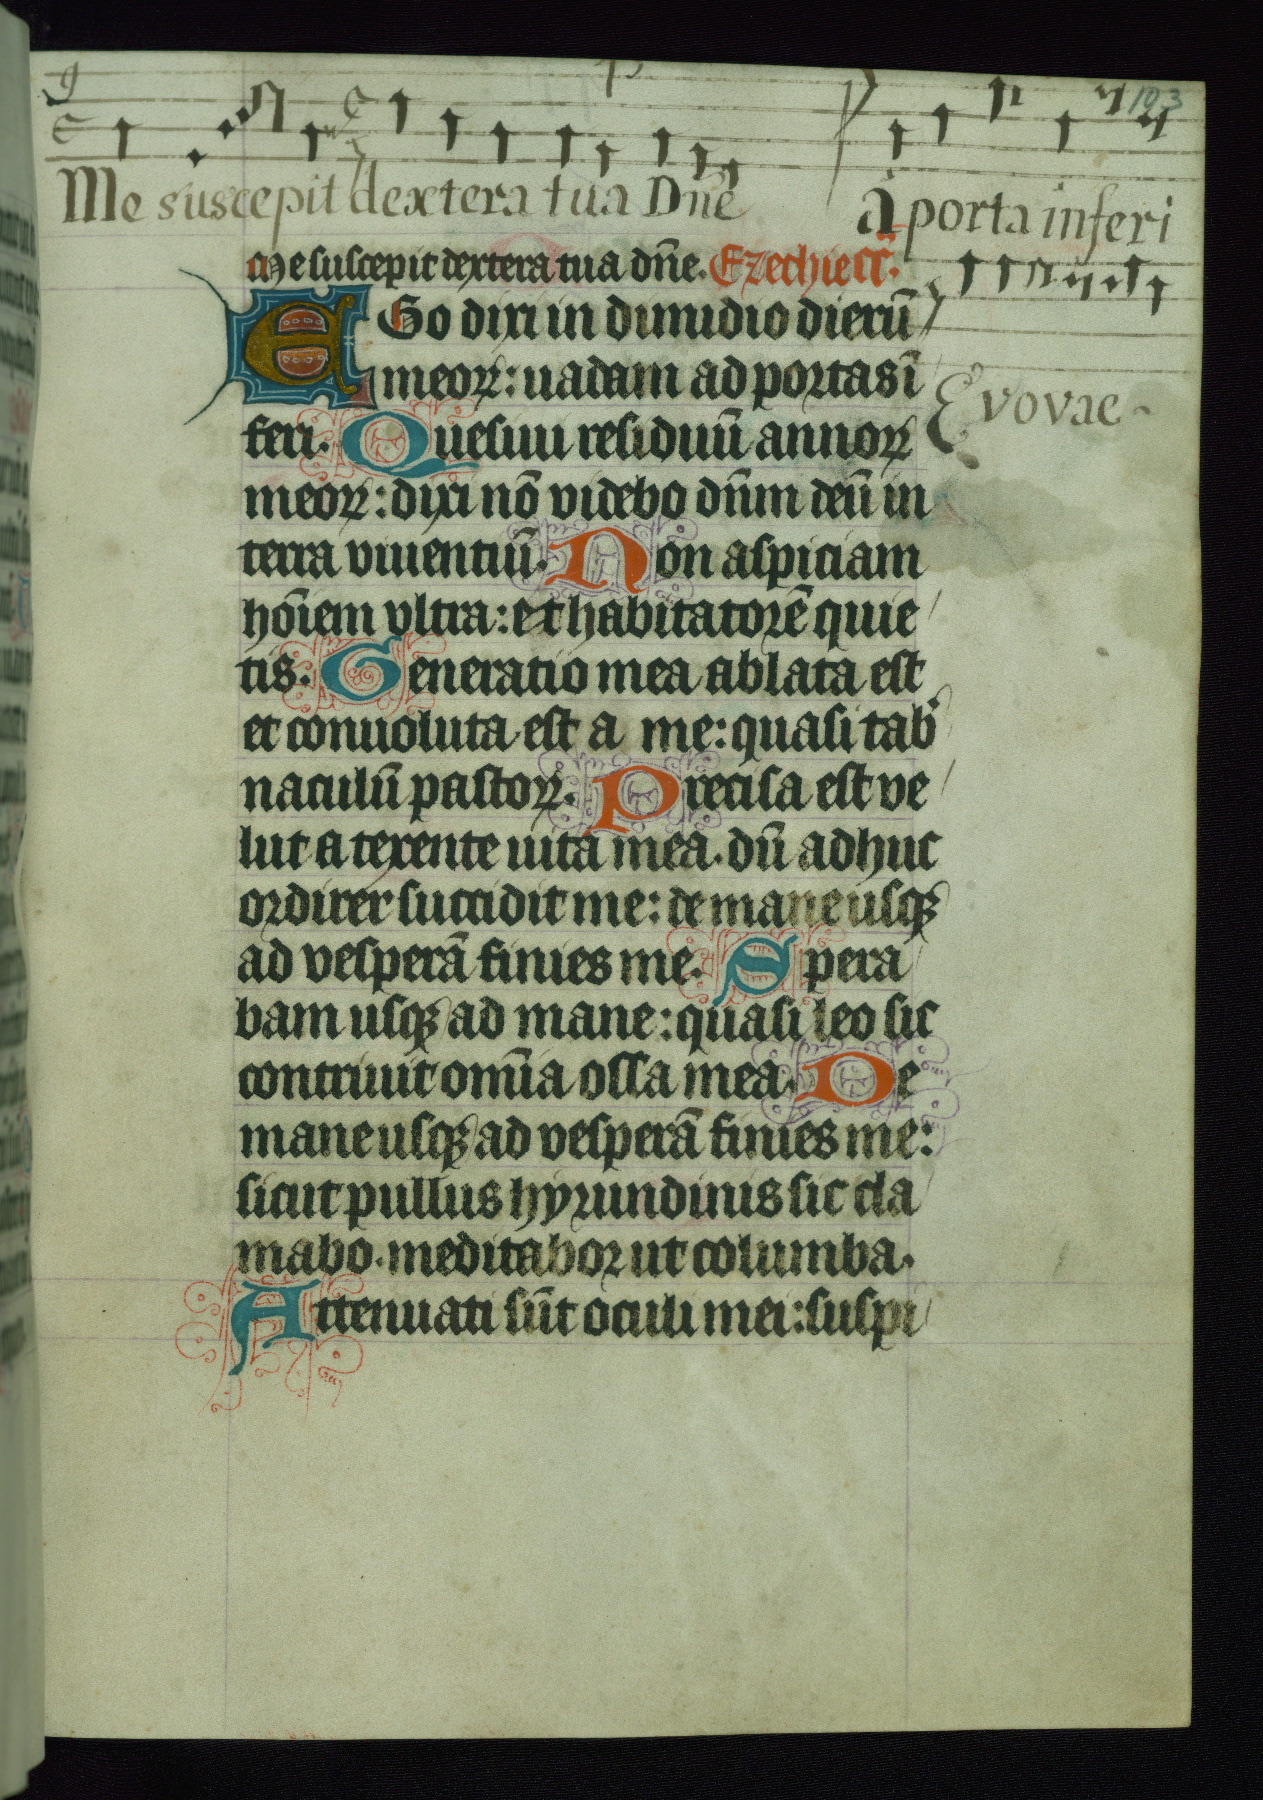 103
Me suscepit dextera tua Dñe
A porta inferi
Me suscepit dextera tua dñe.
EGo dixi in dimidio dierū
meoꝝ: uadam ad portas ī
Evovae
feri. Quesiui residuū annoꝝ
meoꝝ: dixi nō videbo dn̄m deū in
terra viuentiū. Non aspiciam
hoīem vltra: et habitatorē quie
tis. Generatio mea ablata est
et conuoluta est a me: quasi tab̾
naculū pastoꝝ. Precisa est ve
lut a texente uita mea. dū adhuc
ordirer succidit me: de mane usqꝫ
ad vesperā finies me. Spera
bam usqꝫ ad mane: quasi leo sic
contriuit omīa ossa mea. De
mane usqꝫ ad vesperā finies me:
sicut pullus hyrundinis sic cla
mabo. meditabor ut columba.
Attenuati sūt oculi mei: suspi